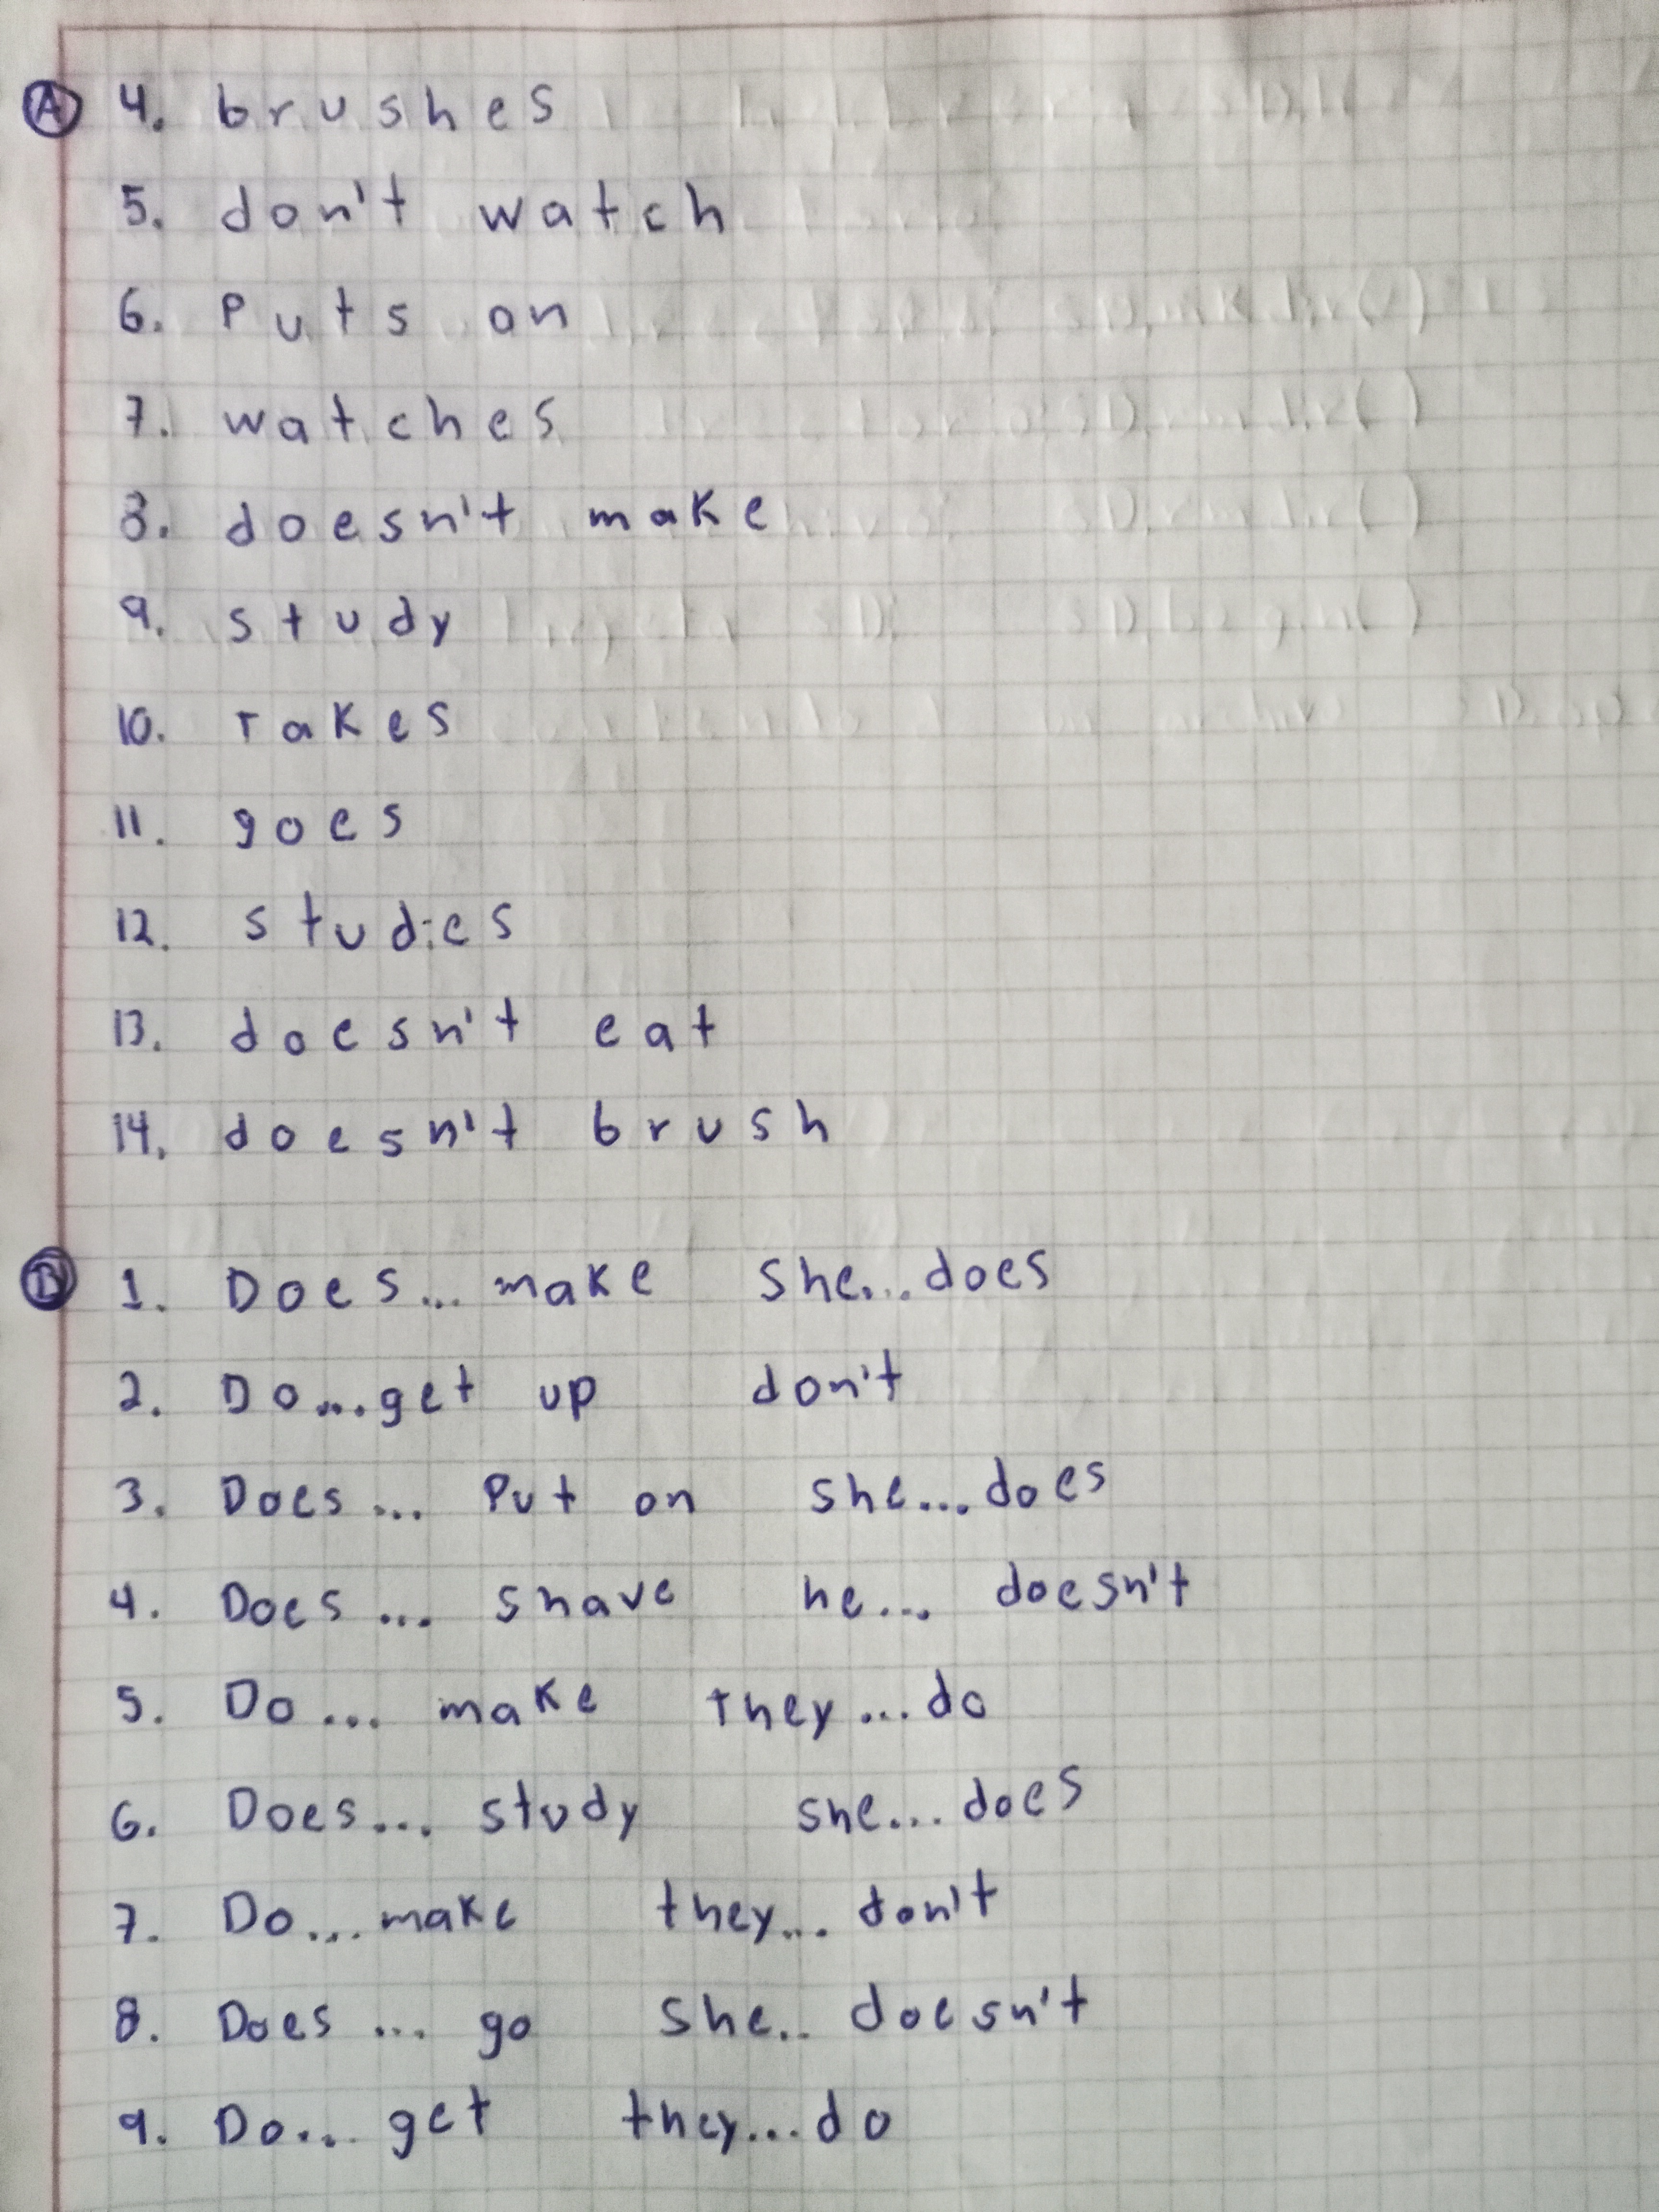 A 4. brushes
5. don't watch
6. Puts on
7. watches
8. doesn't make
9. study
10. Takes
11. goes
12. studies
13. doesn't eat
14. doesn't brush
B 1. Does... make She... does
2. Do... get up don't
3. Does... Put on she... does
4. Does... shave he... doesn't
5. Do... make They... do
6. Does... study she... does
7. Do... make they... don't
8. Does... go She.. doesn't
9. Do... get they... do